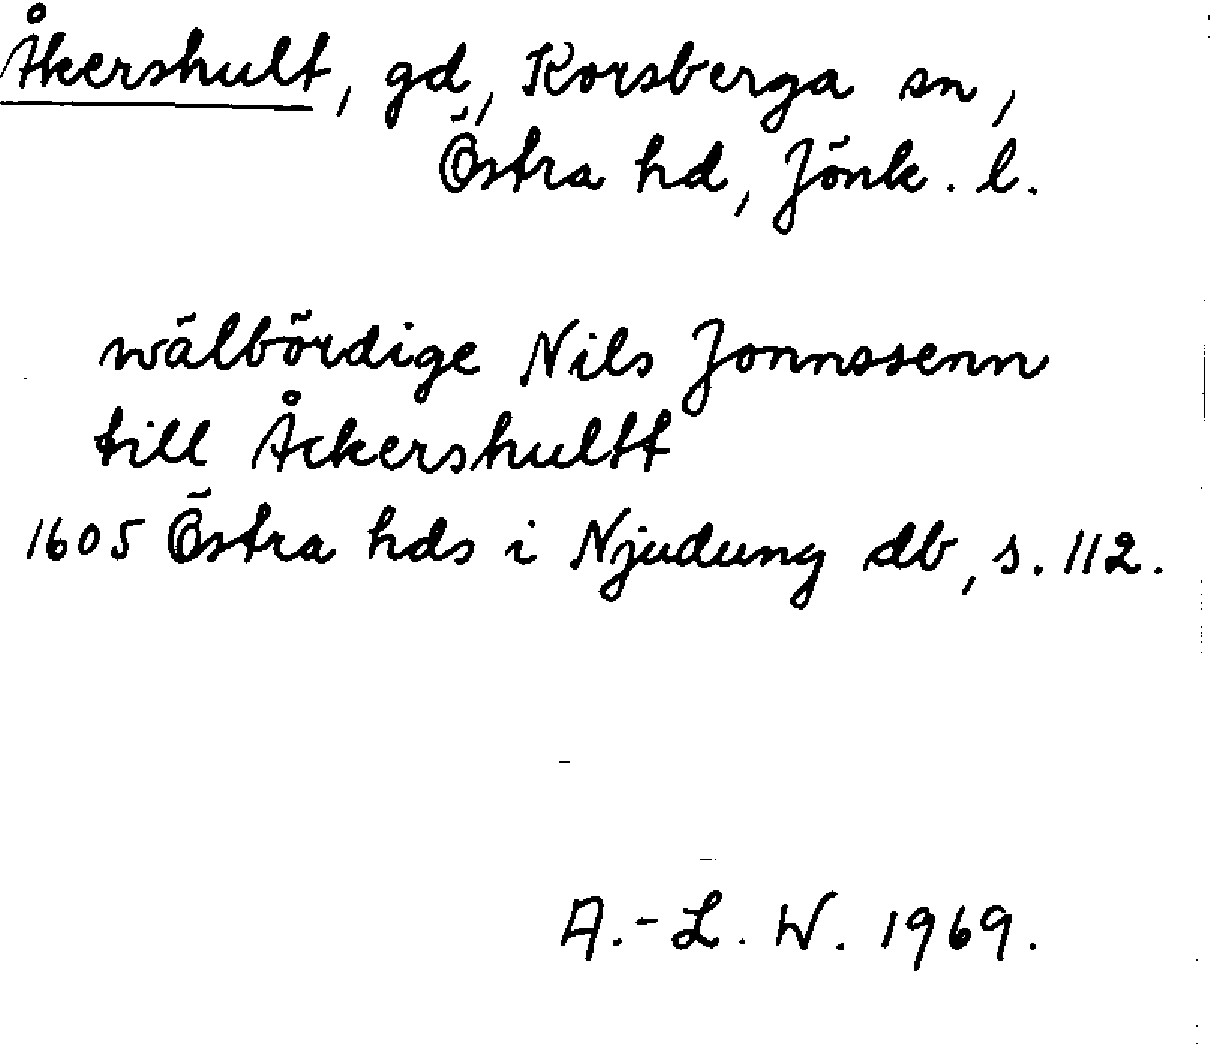 Åkershult, gd, Korsberga sn,
Östra hd, Jönk. l.
wälbördige Nils Jonnssenn
till Åckershultt
1605 Östra hds i Njudung db, s. 112.
A.-L. W. 1969.